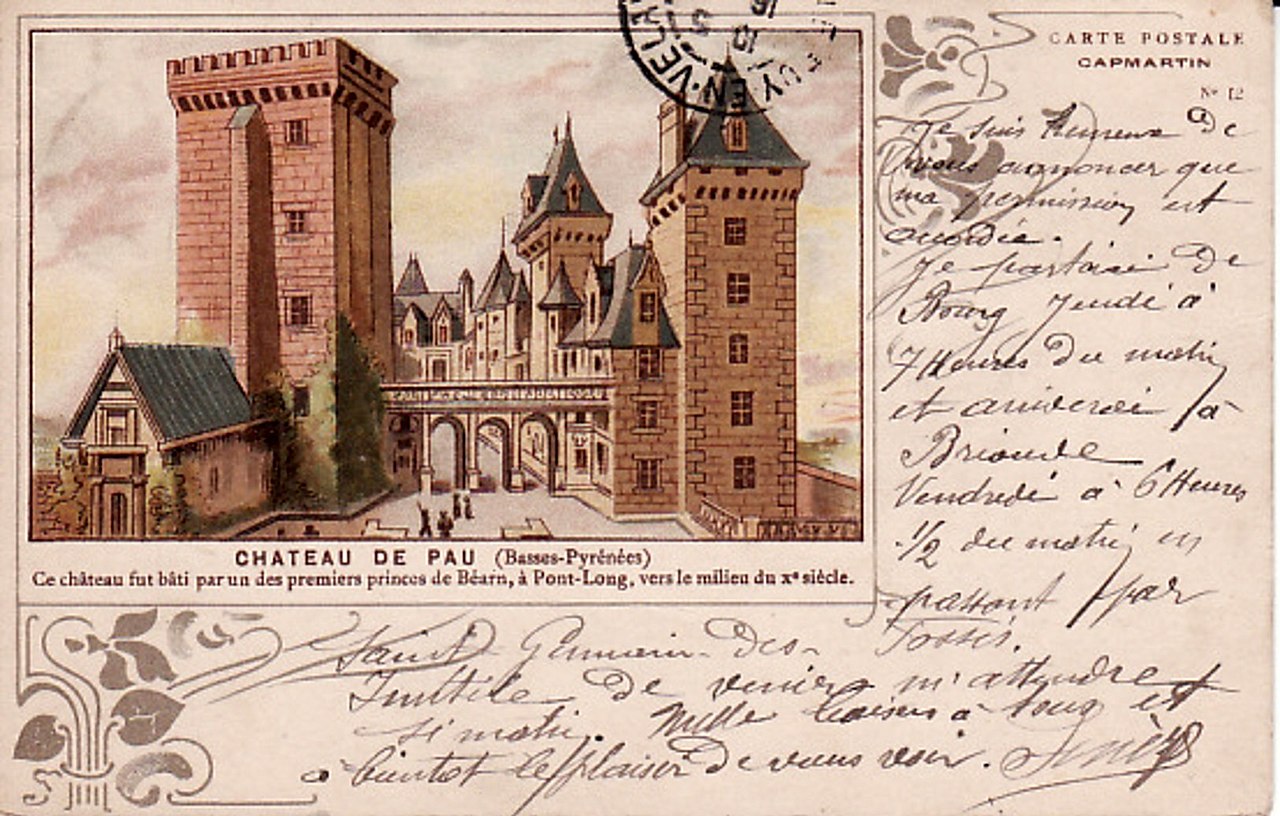 CARTE POSTALE
CAPMARTIN
N° 12
PUY-EN-VELAY
10 5
16
CHATEAU DE PAU (Basses-Pyrénées)
Ce château fut bâti par un des premiers princes de Béarn, à Pont-Long, vers le milieu du Xe siècle.
Je suis heureux de
vous annoncer que
ma permission est
accordée.
Je partirai de
Bourg Jeudi à
7 Heures du matin
et arriverai à
Brioude
Vendredi à 6 Heures
1/2 du matin en
passant par
Saint-Germain-des-Fossés.
Inutile de venir m'attendre
si matin. Mille baisers à tous et
à bientot le plaisir de vous voir.